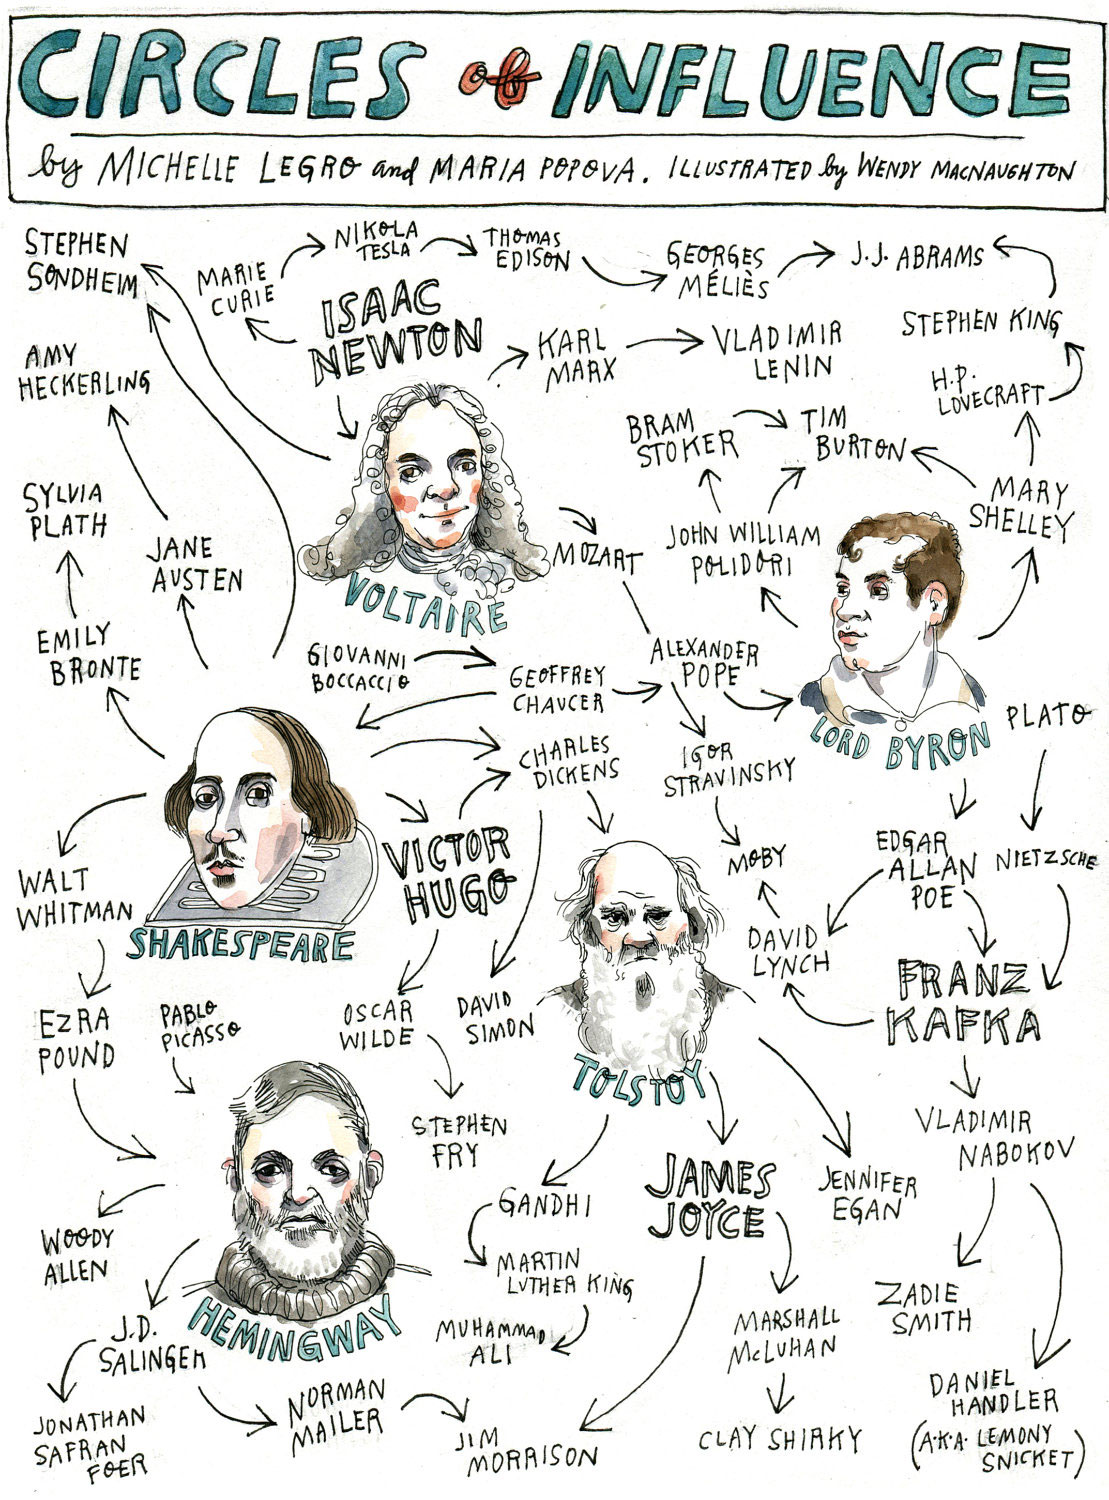 CIRCLES of INFLUENCE
by MICHELLE LEGRO and MARIA POPOVA. ILLUSTRATED by WENDY MACNAUGHTON
STEPHEN
SONDHEIM
MARIE
CURIE
NIKOLA
TESLA
THOMAS
EDISON
GEORGES
MÉLIÈS
J.J. ABRAMS
ISAAC
NEWTON
STEPHEN KING
KARL
MARX
VLADIMIR
LENIN
AMY
HECKERLING
H.P.
LOVECRAFT
BRAM
STOKER
TIM
BURTON
SYLVIA
PLATH
MARY
SHELLEY
JANE
AUSTEN
MOZART
JOHN WILLIAM
POLIDORI
VOLTAIRE
EMILY
BRONTE
GIOVANNI
BOCCACCIO
GEOFFREY
CHAUCER
ALEXANDER
POPE
LORD BYRON
PLATO
CHARLES
DICKENS
IGOR
STRAVINSKY
VICTOR
HUGO
MOBY
EDGAR
ALLAN
POE
NIETZSCHE
WALT
WHITMAN
SHAKESPEARE
DAVID
LYNCH
FRANZ
KAFKA
EZRA
POUND
PABLO
PICASSO
OSCAR
WILDE
DAVID
SIMON
TOLSTOY
STEPHEN
FRY
VLADIMIR
NABOKOV
GANDHI
JAMES
JOYCE
JENNIFER
EGAN
WOODY
ALLEN
MARTIN
LUTHER KING
HEMINGWAY
MUHAMMAD
ALI
ZADIE
SMITH
J.D.
SALINGER
MARSHALL
McLUHAN
JONATHAN
SAFRAN
FOER
NORMAN
MAILER
JIM
MORRISON
CLAY SHIRKY
DANIEL
HANDLER
(A.K.A. LEMONY
SNICKET)